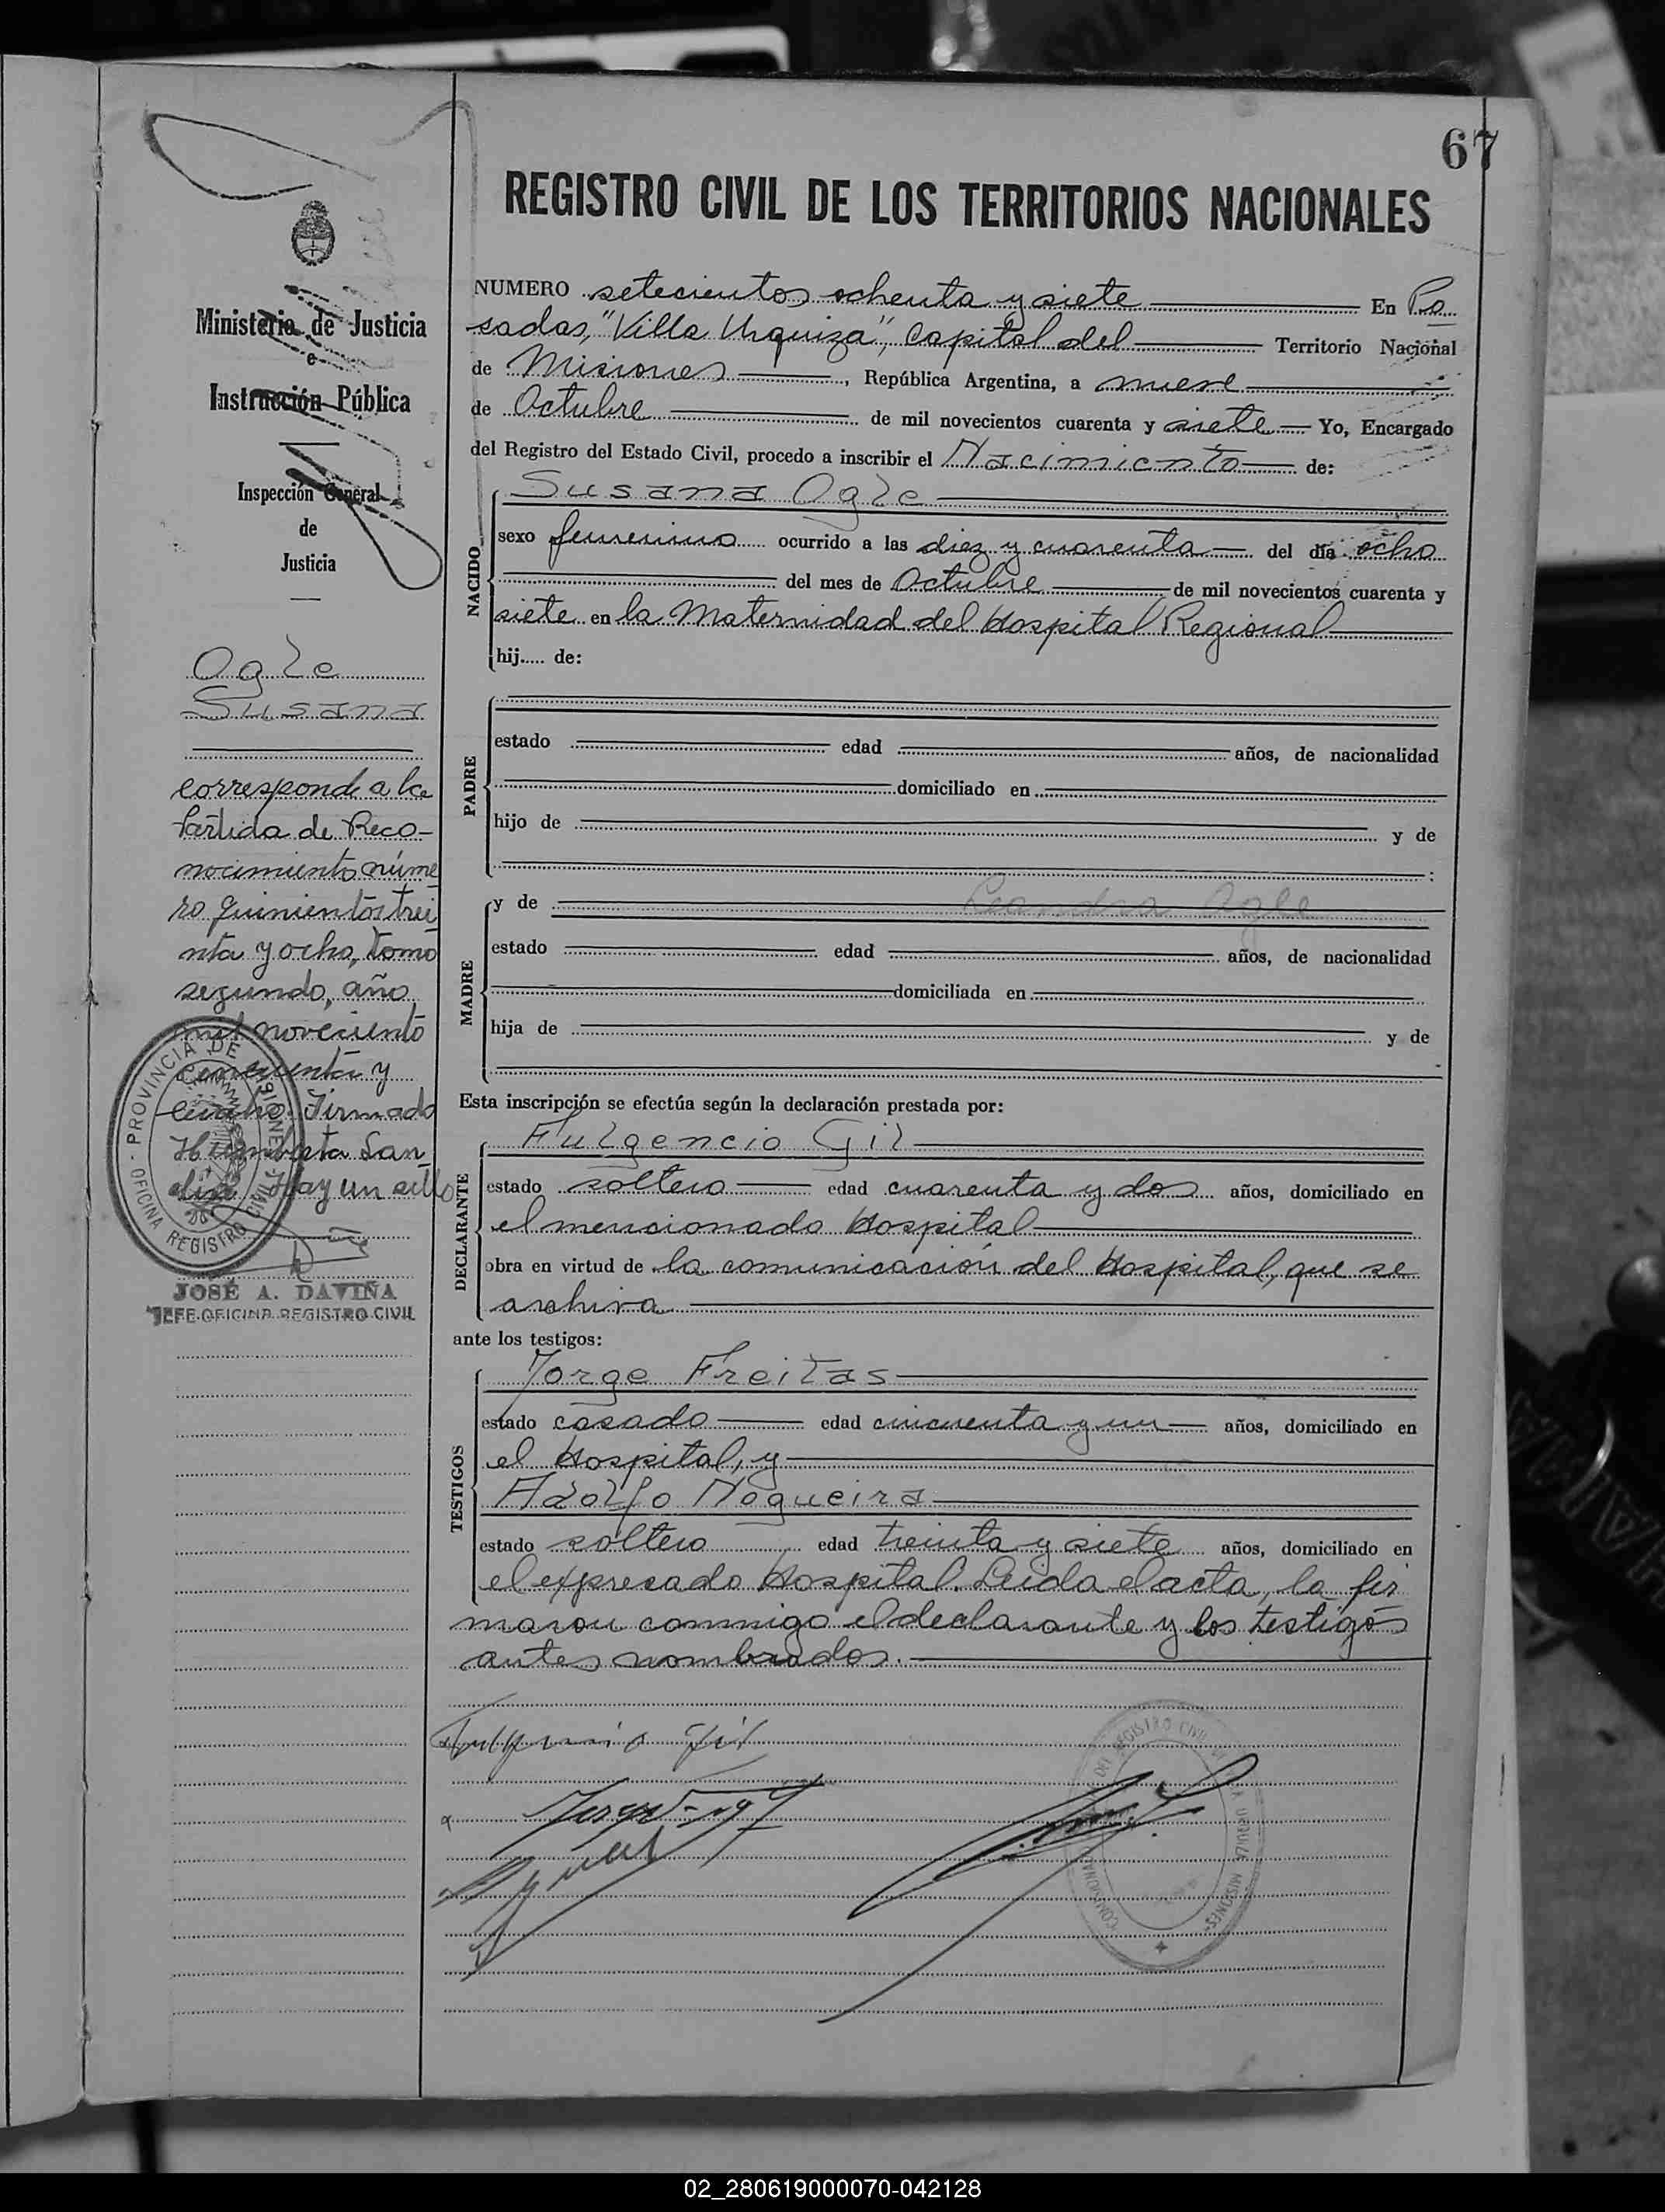 67
REGISTRO CIVIL DE LOS TERRITORIOS NACIONALES
Ministerio de Justicia
e
Instrucción Pública
Inspección General
de
Justicia
Ogle
Susana
corresponde a la
Partida de Reco-
nocimiento núme
ro quinientos trei
nta y ocho, tomo
segundo, año
mil noveciento
cincuenta y
cuatro. Firmado
Hay un sello
PROVINCIA DE MISIONES
OFICINA REGISTRO CIVIL
JOSÉ A. DAVIÑA
JEFE OFICINA REGISTRO CIVIL
NUMERO setecientos ochenta y siete En Po
sadas, "Villa Urquiza", Capital del Territorio Nacional
de Misiones, República Argentina, a nueve
de Octubre de mil novecientos cuarenta y siete Yo, Encargado
del Registro del Estado Civil, procedo a inscribir el Nacimiento de:
NACIDO
Susana Ogle
sexo femenino ocurrido a las diez y cuarenta del día ocho
del mes de Octubre de mil novecientos cuarenta y
siete en la Maternidad del Hospital Regional
hij..... de:
PADRE
estado edad años, de nacionalidad
domiciliado en
hijo de y de
MADRE
y de Leandra Ogle
estado edad años, de nacionalidad
domiciliada en
hija de y de
Esta inscripción se efectúa según la declaración prestada por:
DECLARANTE
Fulgencio Gil
estado soltero edad cuarenta y dos años, domiciliado en
el mencionado Hospital
obra en virtud de la comunicación del Hospital, que se
archiva
ante los testigos:
TESTIGOS
Jorge Freitas
estado casado edad cincuenta y un años, domiciliado en
el Hospital, y
Adolfo Nogueira
estado soltero edad treinta y siete años, domiciliado en
el expresado Hospital. Leida el acta, la fir
maron conmigo el declarante y los testigos
antes nombrados.
Fulgencio Gil
02_280619000070-042128